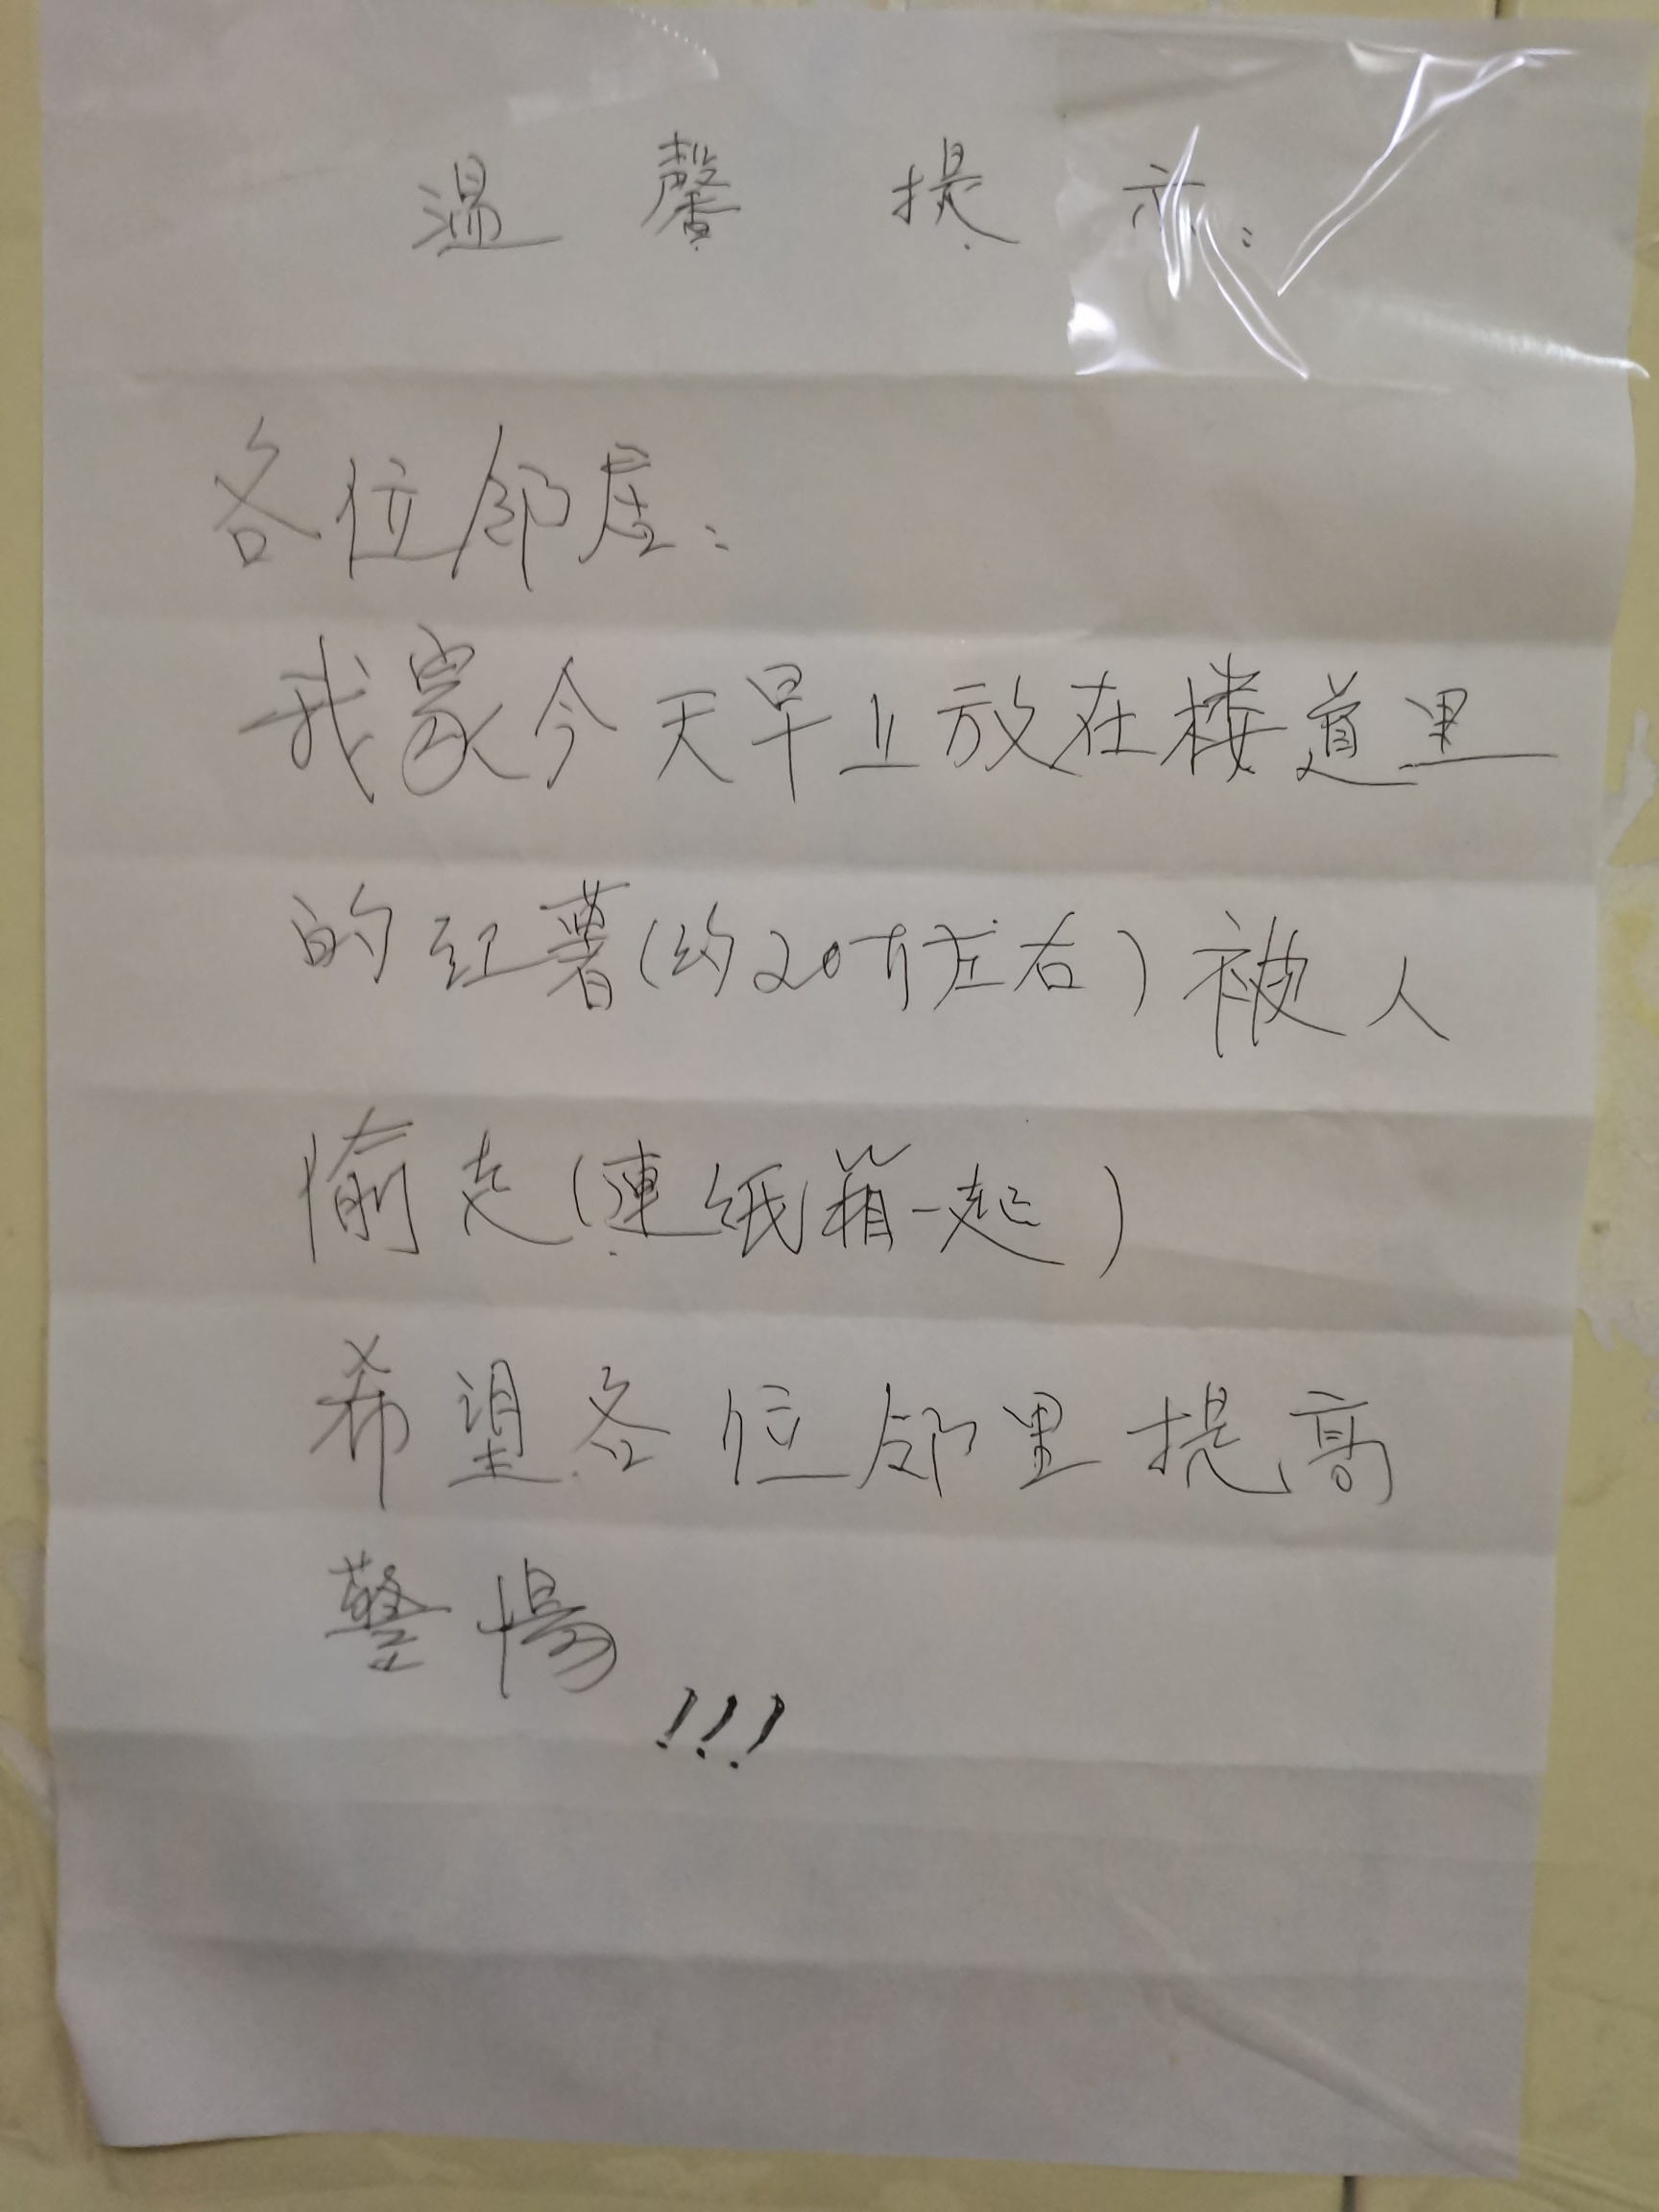 温馨提示：
各位邻居：
我家今天早上放在楼道里
的红薯(约20斤左右)被人
偷走(連纸箱一起)
希望各位邻里提高
警惕!!!